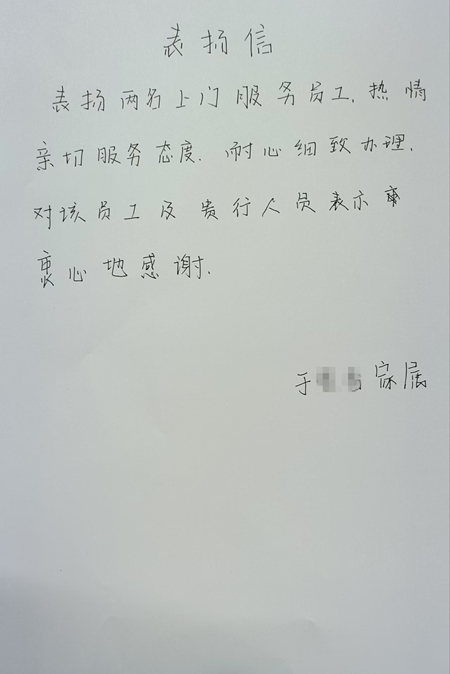 表扬信
表扬两名上门服务员工,热情
亲切服务态度.耐心细致办理.
对该员工及贵行人员表示
衷心地感谢.
于 家属